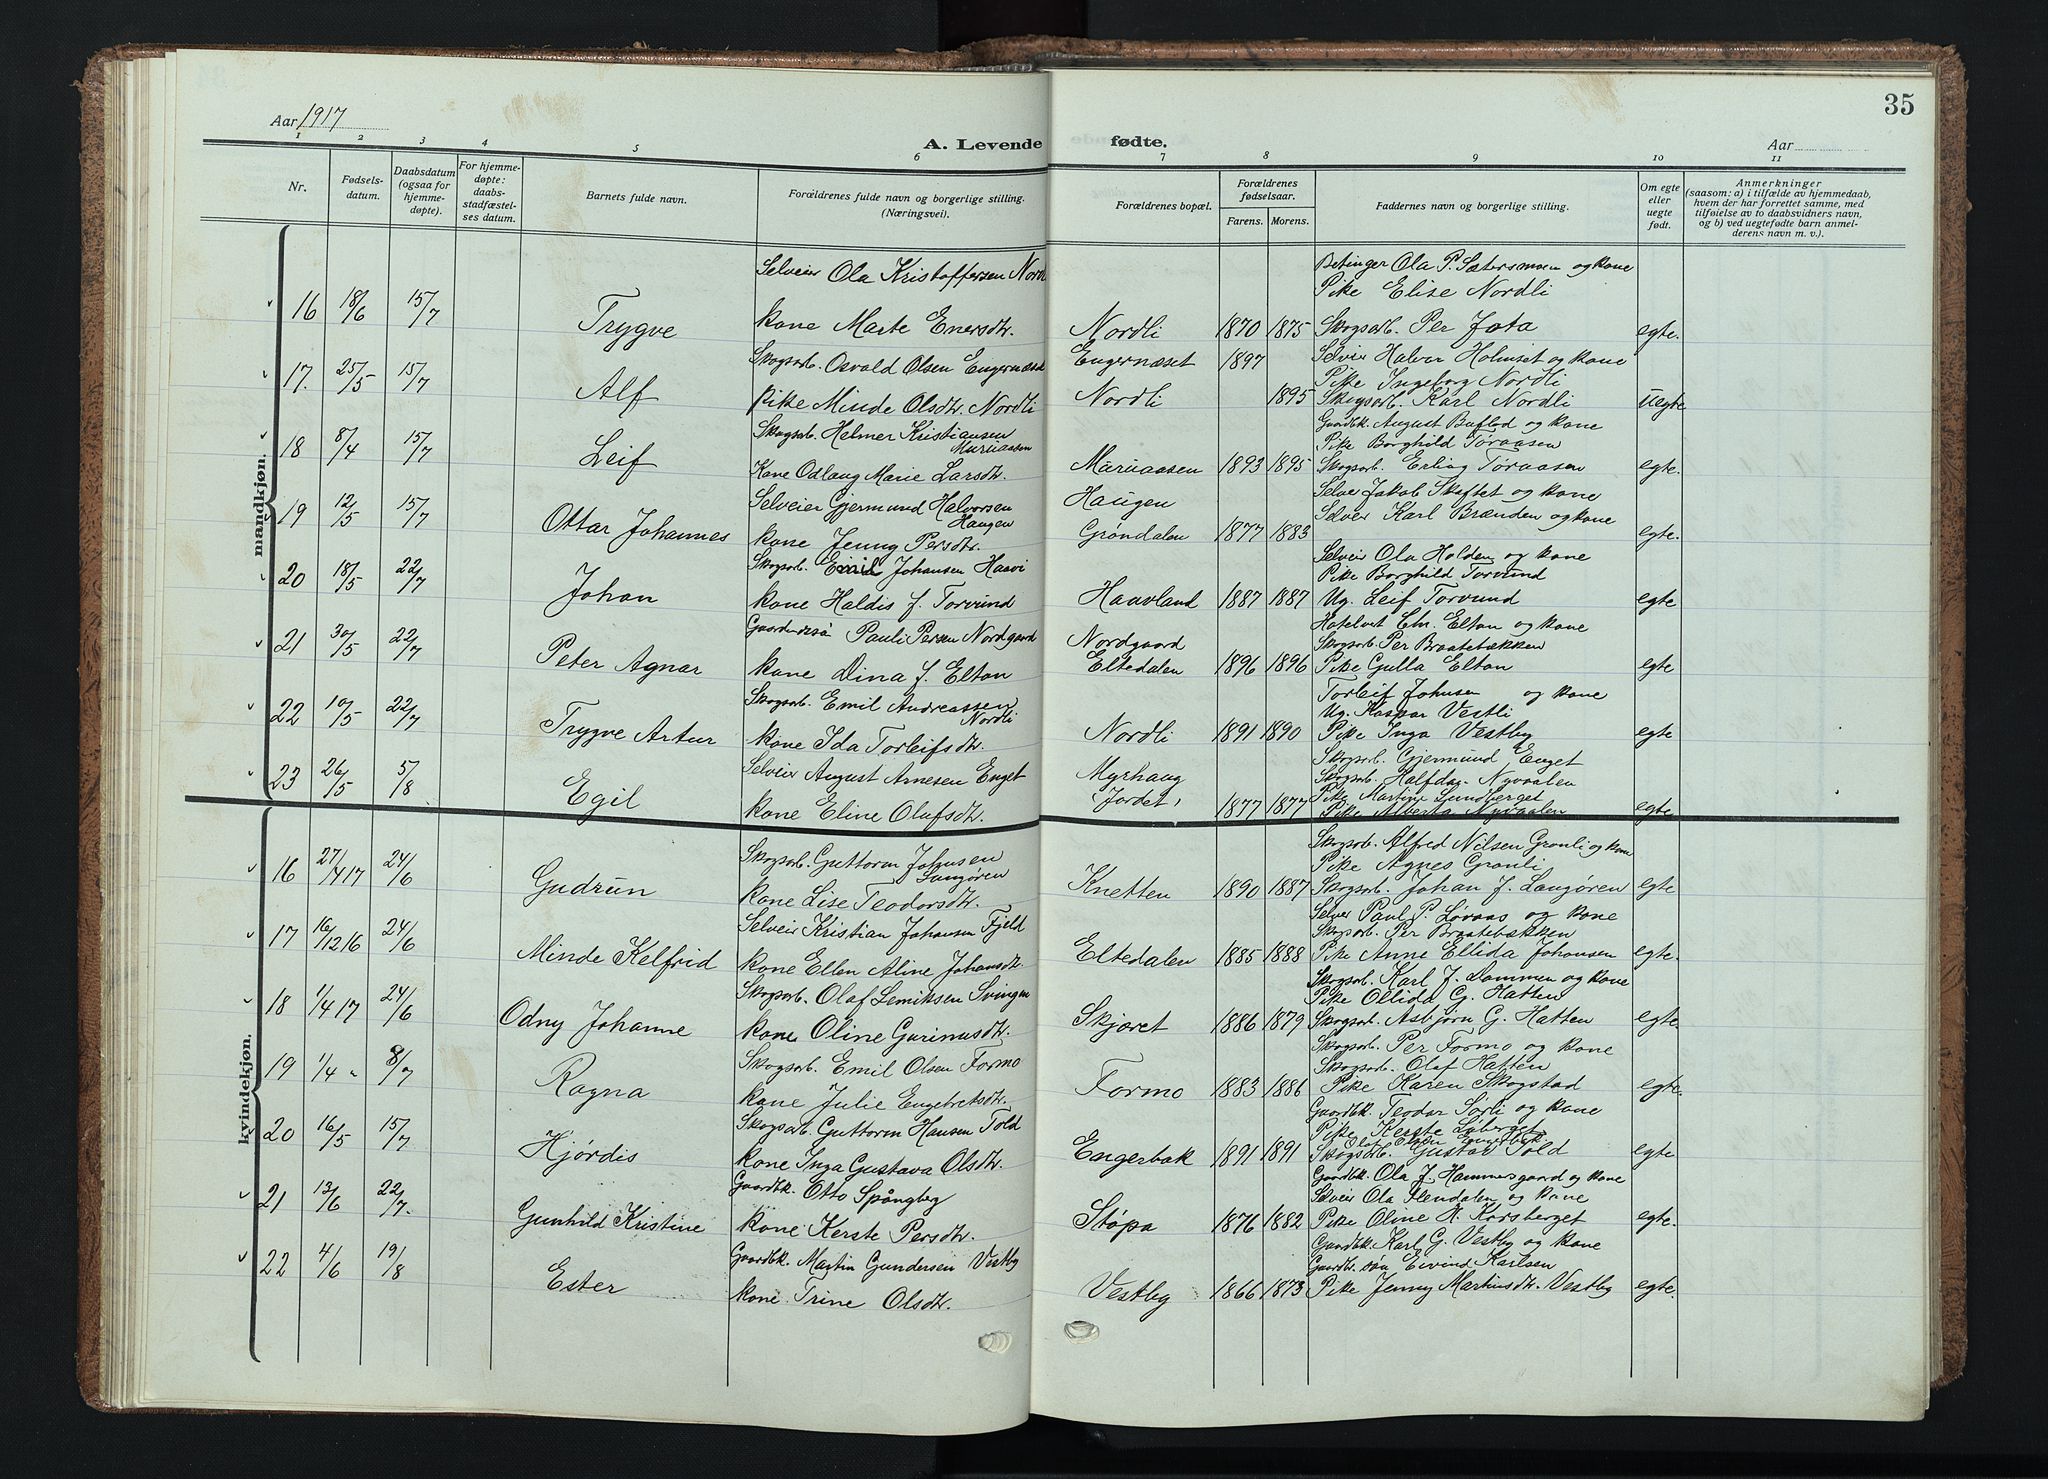 35
Aar 1917
A. Levende fødte.
Aar
1 2 3 4 5 6 7 8 9 10 11
Nr.
Fødsels-
datum.
Daabsdatum
(ogsaa for
hjemme-
døpte).
For hjemme-
døpte:
daabs-
stadfæstel-
ses datum.
Barnets fulde navn.
Forældrenes fulde navn og borgerlige stilling.
(Næringsvei).
Forældrenes bopæl.
Forældrenes
fødselsaar.
Farens. Morens.
Faddernes navn og borgerlige stilling.
Om egte
eller
uegte
født.
Anmerkninger
(saasom: a) i tilfælde av hjemmedaab,
hvem der har forrettet samme, med
tilføielse av to daabsvidners navn,
og b) ved uegtefødte barn anmel-
derens navn m. v.).
mandkjøn.
Selveier Ola Kristoffersen Nordli
Betinger Ola P. Sætersmoen og kone
Pike Elise Nordli
16 18/6 15/7 Trygve kone Marte Enersdtr. Nordli 1870 1875 Skogsarb. Per Jota egte.
Skogsarb. Osvald Olsen Engernæset Engernæset 1897 Selveier Halvor Holmset og kone
Pike Ingeborg Nordli
17. 25/5 15/7 Alf Pike Minde Olsdtr. Nordli Nordli 1895 Skogsarb. Karl Nordli uegte
Skogsarb. Helmer Kristiansen
Muruaasen
Gaardbk. August Bufled og kone
Pike Borghild Toraasen
18 8/4 15/7 Leif Kone Odlaug Marie Larsdtr. Muruaasen 1893 1895 Skogsarb. Erling Toraasen egte.
Selveier Gjermund Halvorsen
Haugen
Haugen
Selveier Jakob Skaftet og kone
Selveier Karl Brænden og kone
19 12/5 15/7 Ottar Johannes kone Jenny Persdtr. Grøndalen 1877 1883 egte.
Skogsarb. Emil Johansen Haavi
Selveier Ola Holden og kone
Pike Borghild Torvund
20 18/5 22/7 Johan kone Haldis f. Torvund Haavland 1887 1887 Ug. Leif Torvund egte
Pauli Persen Nordgaard
Nordgaard
Hotelvert Chr. Elton og kone
Skogsarb. Per Braatebækken
21 30/5 22/7 Peter Agnar kone Dina f. Elton Eltedalen 1896 1896 Pike Gulla Elton egte
Skogsarb. Emil Andreassen
Nordli
Torleif Johnsen og kone
Ug. Kaspar Vestli
22 10/5 22/7 Trygve Artur kone Ida Torleifsdtr. Nordli 1891 1890 Pike Inga Vestby egte
Selveier August Arnesen Enget
Myrhaug
Skogsarb. Gjermund Enget
Skogsarb. Halfdan Nyvaalen
Pike Martine Lundberget
23 26/5 5/8 Egil kone Eline Olafsdtr. (Jordet) 1877 1877 Pike Alvesta Nyvaalen egte
kvindekjøn.
Skogsarb. Guttorm Johnsen
Langøren
Skogsarb. Alfred Nilsen Grønli og kone
Pike Agnes Grønli
16 27/4 17 24/6 Gudrun kone Lise Teodorsdtr. Knetten 1890 1887 Skogsarb. Johan J. Langøren egte
Selveier Kristian Johansen Fjeld
Selveier Paul P. Løvaas og kone
Skogsarb. Per Braatebækken
17 16/12 16 24/6 Minde Kelfrid kone Ellen Aline Johansdtr. Eltedalen 1885 1888 Pike Anne Ellida Johansen egte.
Skogsarb. Olaf Lemiksen Svingen
Skogsarb. Karl J. Dammen og kone
Pike Ollida G. Hatten
18 1/4 17 24/6 Odny Johanne kone Oline Gurinusdtr. Skjæret 1886 1879 Skogsarb. Asbjørn G. Hatten egte.
Skogsarb. Emil Olsen Formo
Skogsarb. Per Formo og kone
Skogsarb. Olaf Hatten
19 1/4 " 8/7 Ragna kone Julie Engebretsdtr. Formo 1883 1886 Pike Karen Skogstad egte.
Skogsarb. Guttorm Hansen Told
Gaardbk. Teodor Sørli og kone
Pike Kerste Løberget
Olaf Olsen Engerbak
20 16/5 15/7 Hjørdis kone Inga Gustava Olsdtr. Engerbak 1891 1891 Skogsarb. Gustav Told egte
Gaardbk. Otto Spångberg
Gaardbk. Ola J. Hammersgaard og kone
Selveier Ola Flendalen og kone
21 13/6 22/7. Gunhild Kristine kone Kerste Persdtr. Støpa 1876 1882 Pike Oline H. Korsberget egte.
Gaardbk. Martin Gundersen Vestby
Gaardbk. Karl G. Vestby og kone
Gaardbr. søn Eivind Karlsen
22 4/6 19/8 Ester kone Trine Olsdtr. Vestby 1866 1873 Pike Jenny Martinsdtr. Vestby egte.